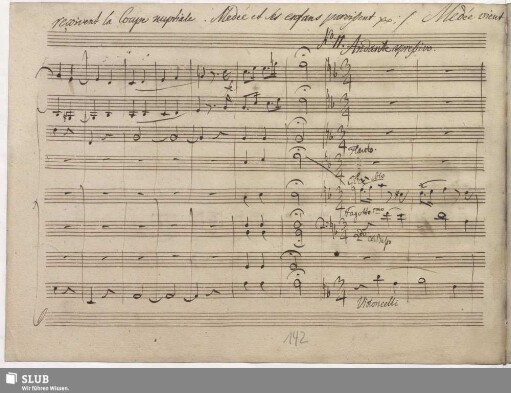 reçoivent la Coupe nuptiale. Medée et les enfans paroissent
Medée vient
No 11. Andante espressivo.
Flauto.
Oboe Solo
Fagotto 1mo
Violoncelli
142
SLUB
Wir führen Wissen.